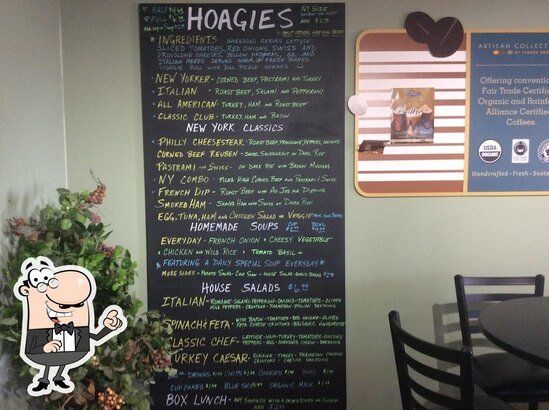 HOAGIES
INGREDIENTS - SHREDDED ICEBERG LETTUCE
SLICED TOMATOES, RED ONIONS, SWISS AND
PROVOLONE CHEESES, YELLOW PEPPERS, OIL AND
ITALIAN HERBS SERVED WARM ON FRESH BAKED
HOAGIE ROLL WITH DILL PICKLE SPEARS
NEW YORKER - CORNED BEEF, PASTRAMI AND TURKEY
ITALIAN - ROAST BEEF, SALAMI AND PEPPERONI
ALL AMERICAN - TURKEY, HAM AND ROAST BEEF
CLASSIC CLUB - TURKEY, HAM AND BACON
NEW YORK CLASSICS
PHILLY CHEESESTEAK - ROAST BEEF, PROVOLONE, PEPPERS, ONIONS
CORNED BEEF REUBEN - SWISS, SAUERKRAUT ON DARK RYE
PASTRAMI & SWISS - ON DARK RYE WITH BROWN MUSTARD
NY COMBO - PILED HIGH CORNED BEEF AND PASTRAMI & SWISS
FRENCH DIP - ROAST BEEF WITH AU JUS FOR DIPPING
SMOKED HAM - SHAVED HAM WITH SWISS ON DARK RYE
EGG, TUNA, HAM AND CHICKEN SALAD OR VEGGIE
HOMEMADE SOUPS CUP BOWL
EVERYDAY - FRENCH ONION & CHEESY VEGETABLE
CHICKEN AND WILD RICE & TOMATO BASIL
FEATURING A DAILY SPECIAL SOUP EVERYDAY
MORE SIDES - POTATO SALAD - COLE SLAW - HOUSE SALAD
HOUSE SALADS $6.99
ITALIAN - ROMAINE - SALAMI - PEPPERONI - ONIONS - TOMATOES - OLIVES
MILD PEPPERS - CROUTONS - PARMESAN - ITALIAN DRESSING
SPINACH & FETA - WITH BACON - TOMATOES - RED ONIONS - OLIVES
FETA CHEESE - CROUTONS - BALSAMIC VINAIGRETTE
CLASSIC CHEF - LETTUCE - HAM - TURKEY - TOMATOES - ONIONS
PEPPERS - EGG - SHREDDED CHEESE - CROUTONS
TURKEY CAESAR - ROMAINE - TURKEY - PARMESAN CHEESE
CROUTONS - CAESAR DRESSING
DRINKS CHIPS COOKIES
CUPCAKES BLUE SKY ORGANIC MILK
BOX LUNCH - ANY SANDWICH WITH A DRINK & CHIPS OR COOKIE
ARTISAN COLLECTION
Offering convention
Fair Trade Certified
Organic and Rainfo
Alliance Certified
Coffees.
USDA
ORGANIC
Handcrafted • Fresh • Susta